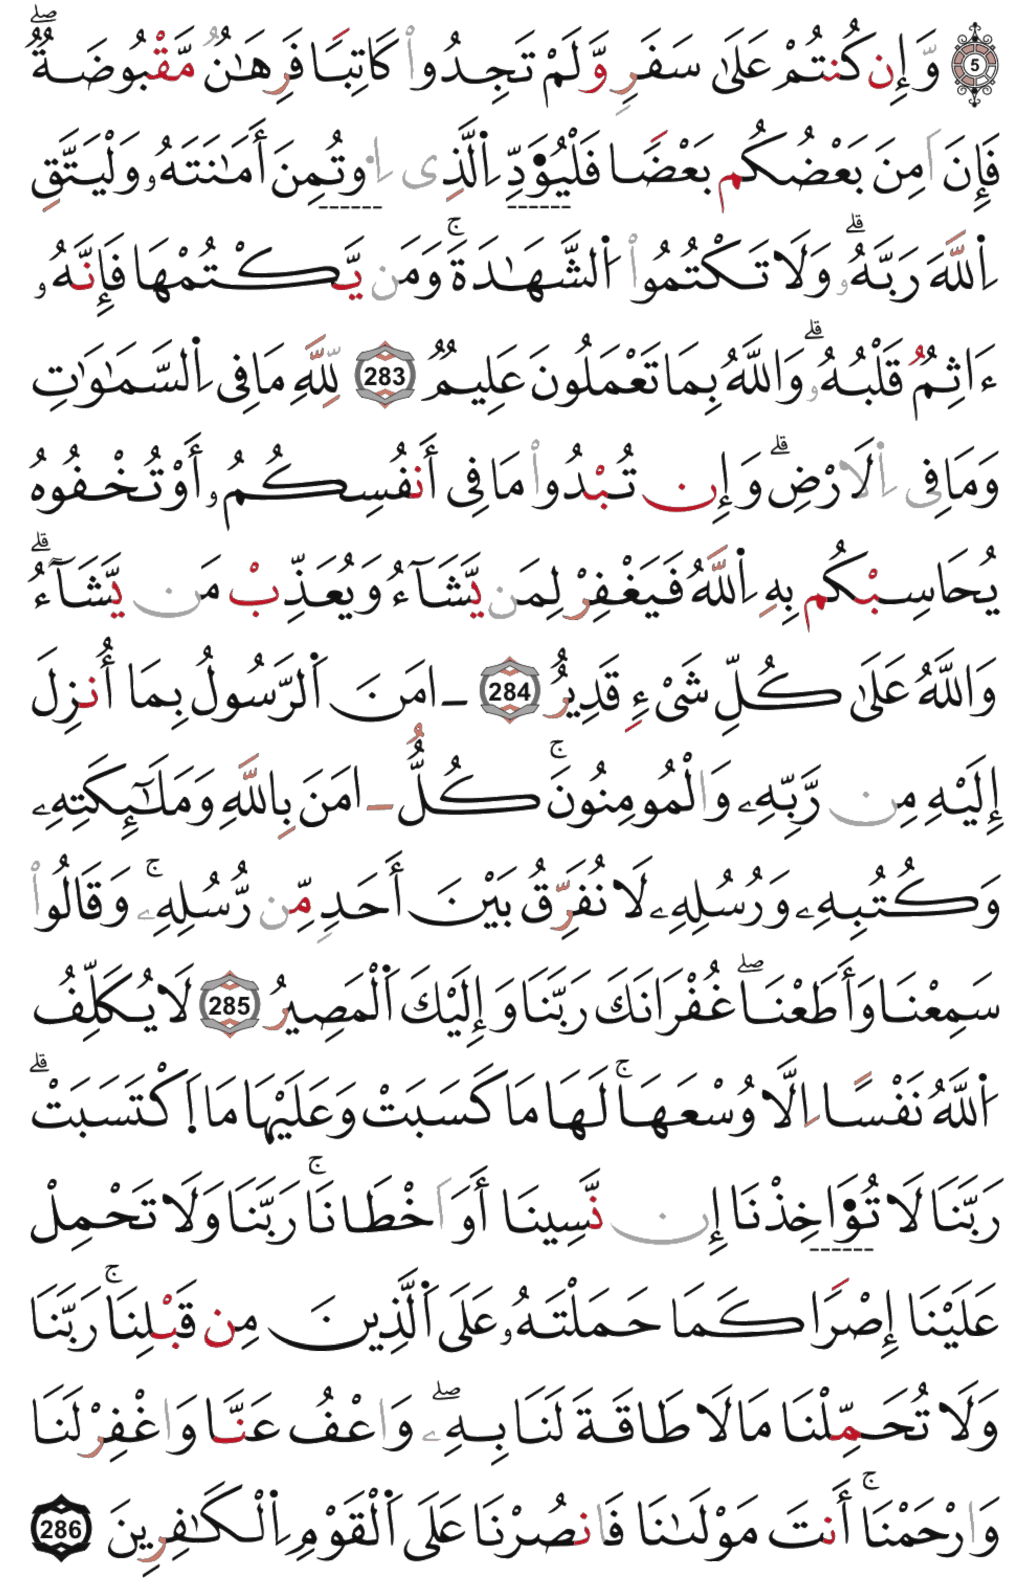 5 وَّإِن كُنتُمْ عَلَىٰ سَفَرٍ وَّلَمْ تَجِدُواْ كَاتِبًا فَرِهَٰنٌ مَّقْبُوضَةٌ ۖ
فَإِنَ اَمِنَ بَعْضُكُم بَعْضًا فَلْيُوَدِّ اِ۬لَّذِى اِ۟وتُمِنَ أَمَٰنَتَهُۥ وَلْيَتَّقِ
اِ۬للَّهَ رَبَّهُۥ ۗ وَلَا تَكْتُمُواْ اُ۬لشَّهَٰدَةَ ۚ وَمَن يَّكْتُمْهَا فَإِنَّهُۥ
ءَاثِمٌ قَلْبُهُۥ ۗ وَاللَّهُ بِمَا تَعْمَلُونَ عَلِيمٌ 283 لِّلَّهِ مَا فِى اِ۬لسَّمَٰوَٰتِ
وَمَا فِى اِ۬لَارْضِ ۗ وَإِن تُبْدُواْ مَا فِى أَنفُسِكُمُۥ أَوْ تُخْفُوهُ
يُحَاسِبْكُم بِهِ اِ۬للَّهُ فَيَغْفِرْ لِمَن يَّشَآءُ وَيُعَذِّبْ مَن يَّشَآءُ ۗ
وَاللَّهُ عَلَىٰ كُلِّ شَىْءٍ قَدِيرٌ 284 ـامَنَ اَ۬لرَّسُولُ بِمَا أُنزِلَ
إِلَيْهِ مِن رَّبِّهِۦ وَالْمُومِنُونَ ۚ كُلٌّ ـامَنَ بِاللَّهِ وَمَلَٰٓئِكَتِهِۦ
وَكُتُبِهِۦ وَرُسُلِهِۦ لَا نُفَرِّقُ بَيْنَ أَحَدٍ مِّن رُّسُلِهِۦ ۚ وَقَالُواْ
سَمِعْنَا وَأَطَعْنَا ۖ غُفْرَانَكَ رَبَّنَا وَإِلَيْكَ اَ۬لْمَصِيرُ 285 لَا يُكَلِّفُ
اُ۬للَّهُ نَفْسًا اِلَّا وُسْعَهَا ۚ لَهَا مَا كَسَبَتْ وَعَلَيْهَا مَا اَ۪كْتَسَبَتْ ۗ
رَبَّنَا لَا تُوَاخِذْنَا إِن نَّسِينَا أَوَ اَخْطَانَا ۚ رَبَّنَا وَلَا تَحْمِلْ
عَلَيْنَا إِصْرًا كَمَا حَمَلْتَهُۥ عَلَى اَ۬لَّذِينَ مِن قَبْلِنَا ۚ رَبَّنَا
وَلَا تُحَمِّلْنَا مَا لَا طَاقَةَ لَنَا بِهِۦ ۖ وَاعْفُ عَنَّا وَاغْفِرْ لَنَا
وَارْحَمْنَا ۚ أَنتَ مَوْلَىٰنَا فَانصُرْنَا عَلَى اَ۬لْقَوْمِ اِ۬لْكَٰفِرِينَ 286